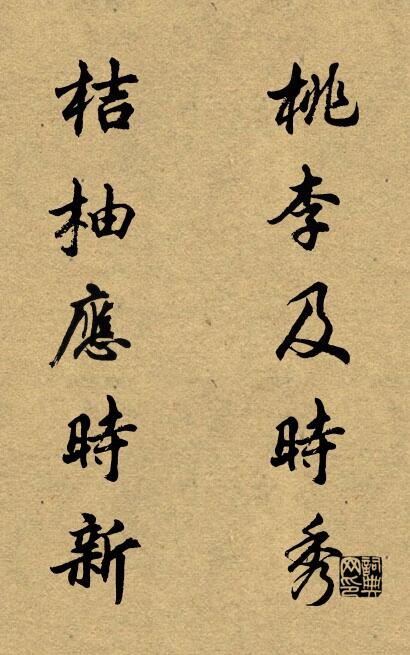 桃李及時秀
桔柚應時新
詞典網印